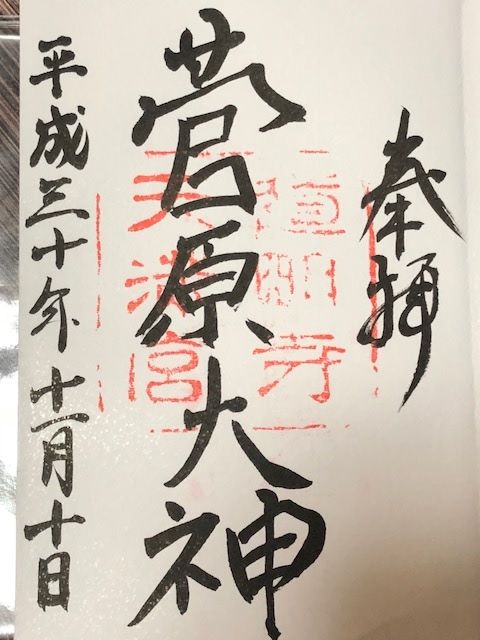 奉拝
道明寺
天満宮
菅原大神
平成三十年十一月十日